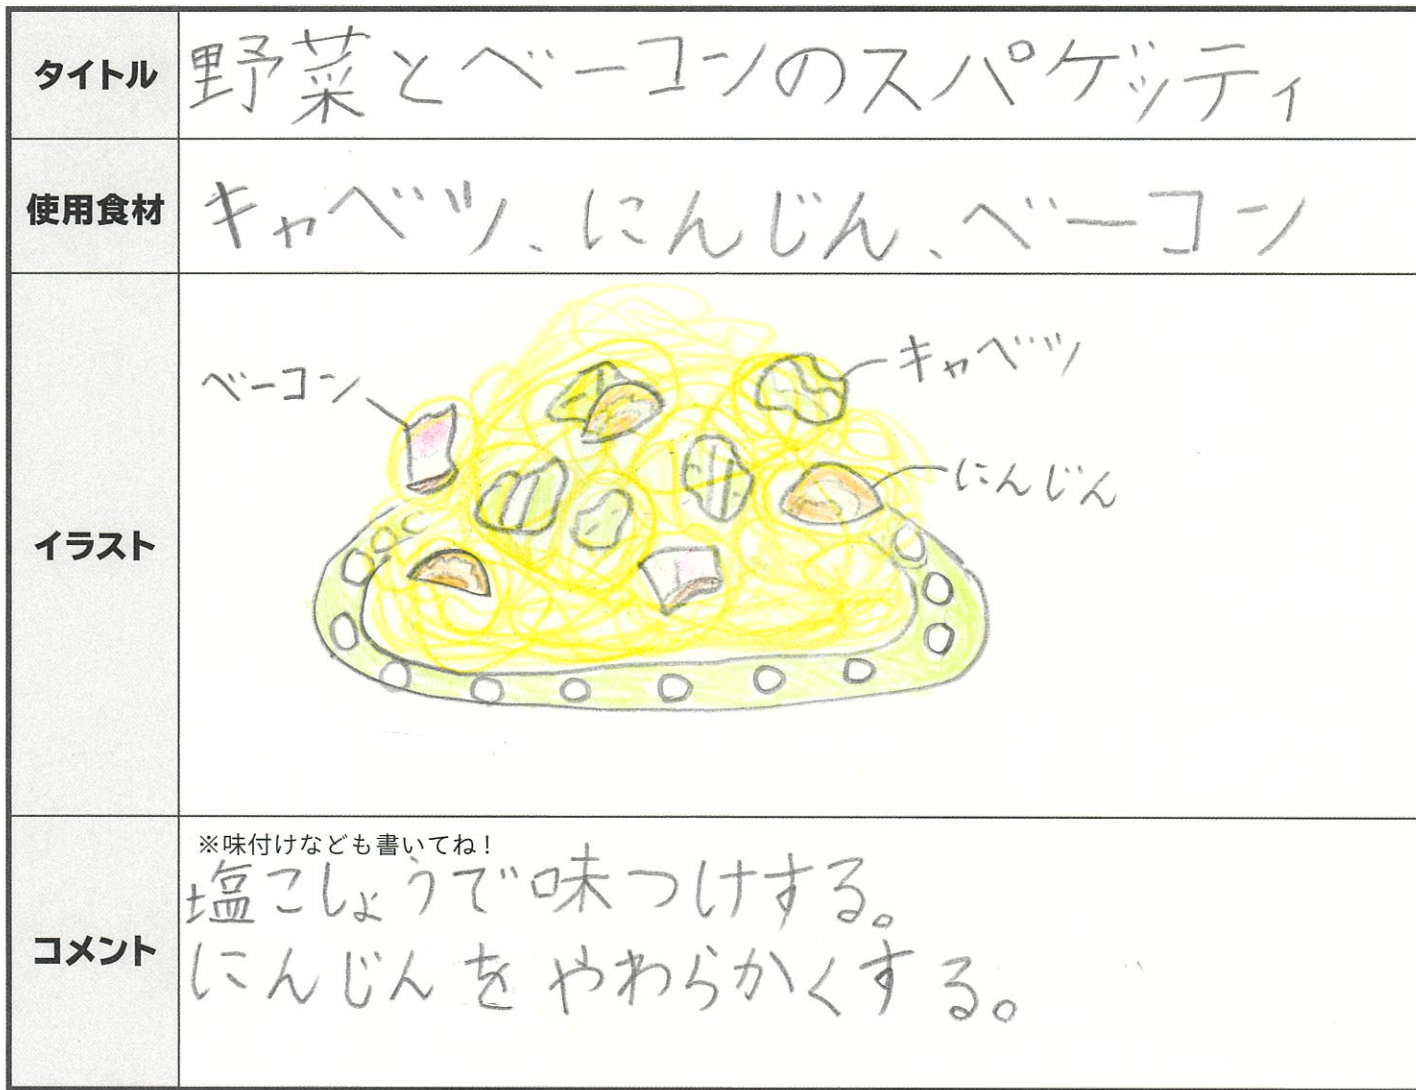 タイトル
野菜とベーコンのスパゲッティ
使用食材
キャベツ、にんじん、ベーコン
イラスト
ベーコン
キャベツ
にんじん
コメント
※味付けなども書いてね！
塩こしょうで味つけする。
にんじんをやわらかくする。